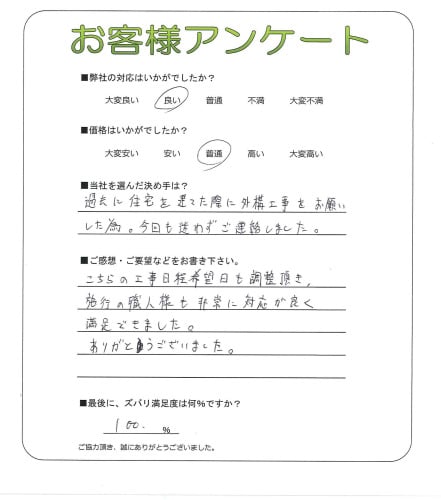 お客様アンケート
■弊社の対応はいかがでしたか？
大変良い 良い 普通 不満 大変不満
■価格はいかがでしたか？
大変安い 安い 普通 高い 大変高い
■当社を選んだ決め手は？
過去に住宅を建てた際に外構工事をお願い
した為。今回も迷わずご連絡しました。
■ご感想・ご要望などをお書き下さい。
こちらの工事日程希望日も調整頂き、
施行の職人様も非常に対応が良く
満足できました。
ありがとうございました。
■最後に、ズバリ満足度は何％ですか？
100. %
ご協力頂き、誠にありがとうございました。